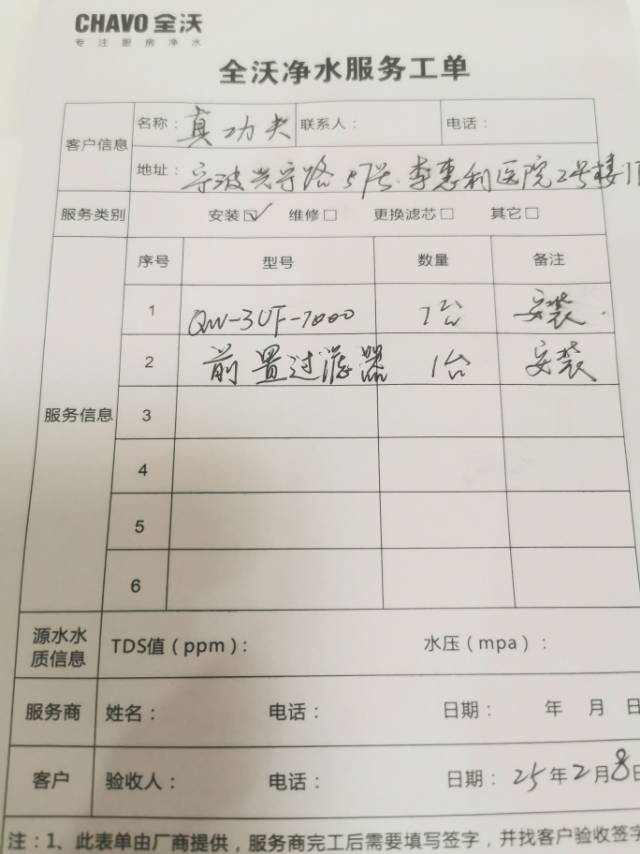 CHAVO 全沃
专注厨房净水
全沃净水服务工单
客户信息
名称：真功夫 联系人： 电话：
地址：宁波兴宁路57号.李惠利医院2号楼1F
服务类别 安装☑ 维修□ 更换滤芯□ 其它□
服务信息
序号 型号 数量 备注
1 QW-3UF-1000 1台 安装.
2 前置过滤器 1台 安装
3
4
5
6
源水水质信息 TDS值（ppm）： 水压（mpa）：
服务商 姓名： 电话： 日期： 年 月 日
客户 验收人： 电话： 日期：25年2月8日
注：1、此表单由厂商提供，服务商完工后需要填写签字，并找客户验收签字